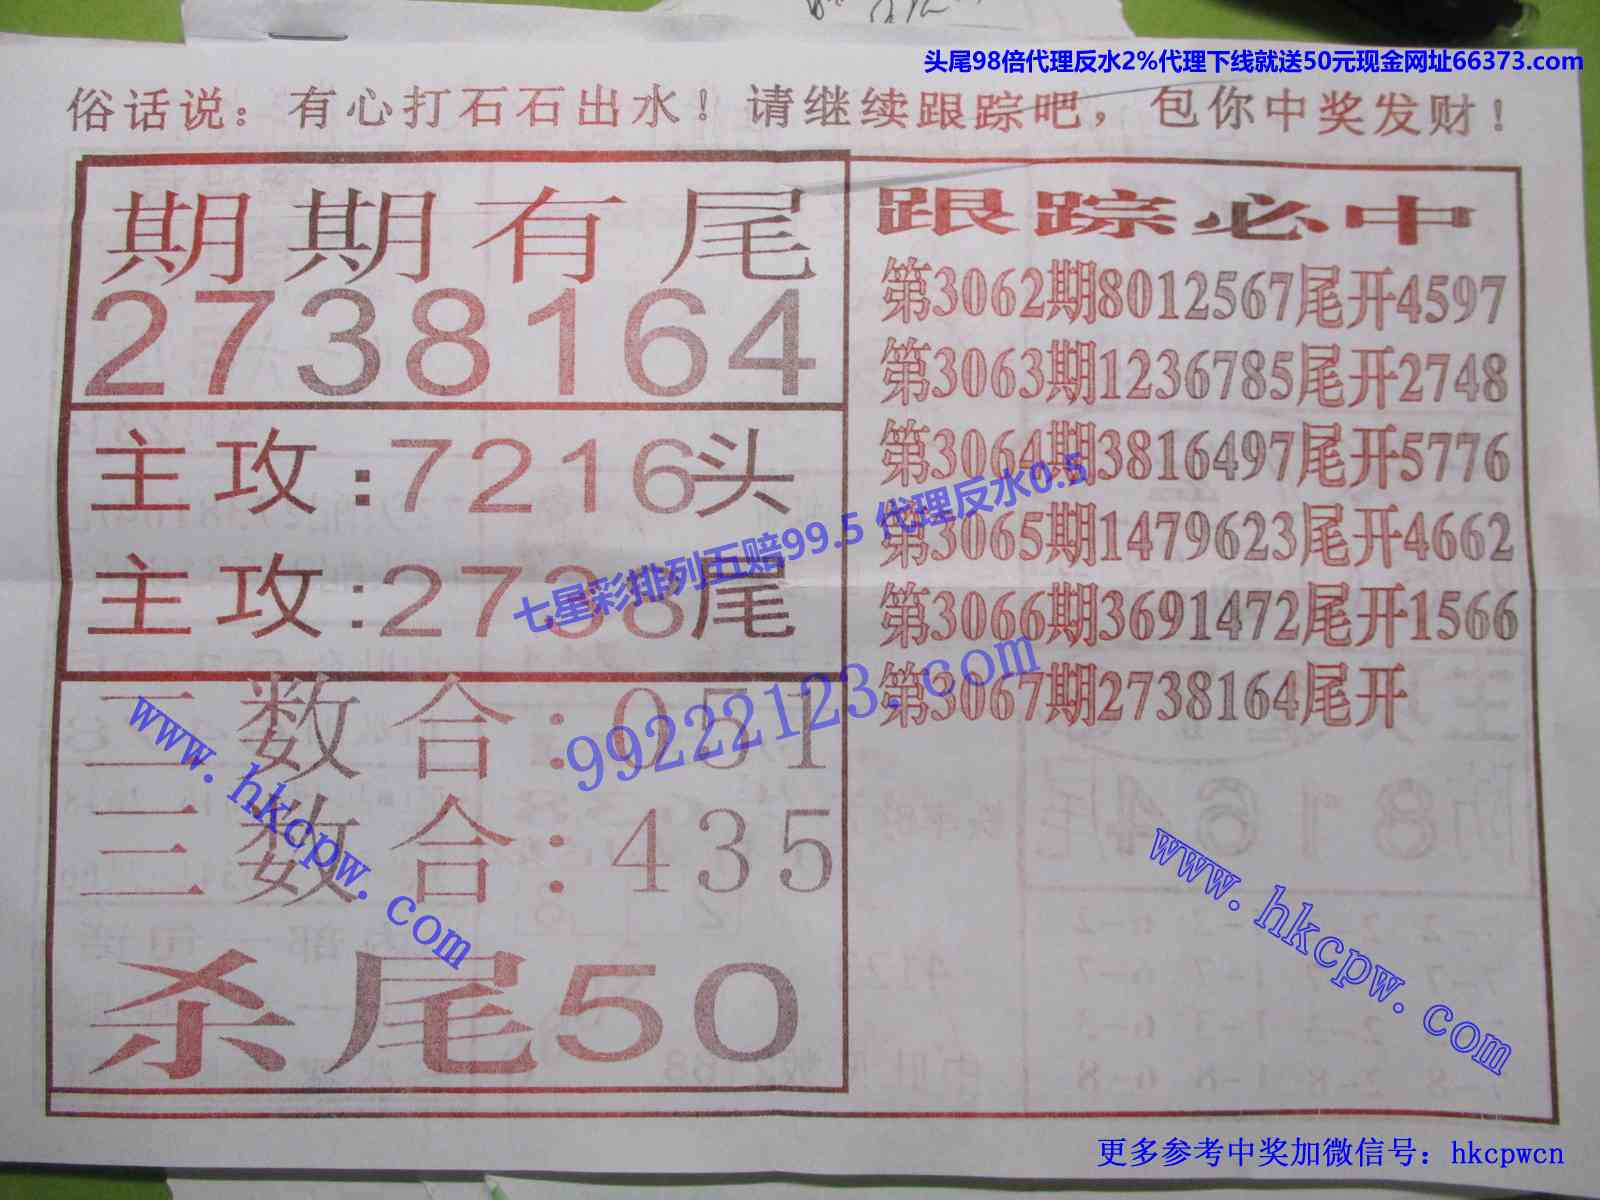 头尾98倍代理反水2%代理下线就送50元现金网址66373.com
俗话说：有心打石石出水！请继续跟踪吧，包你中奖发财！
期期有尾
2738164
主攻:7216头
主攻:2738尾
二数合:051
三数合:435
杀尾50
跟踪必中
第3062期8012567尾开4597
第3063期1236785尾开2748
第3064期3816497尾开5776
第3065期1479623尾开4662
第3066期3691472尾开1566
第3067期2738164尾开
七星彩排列五赔99.5 代理反水0.5
99222123.com
www.hkcpw.com
www.hkcpw.com
更多参考中奖加微信号：hkcpwcn